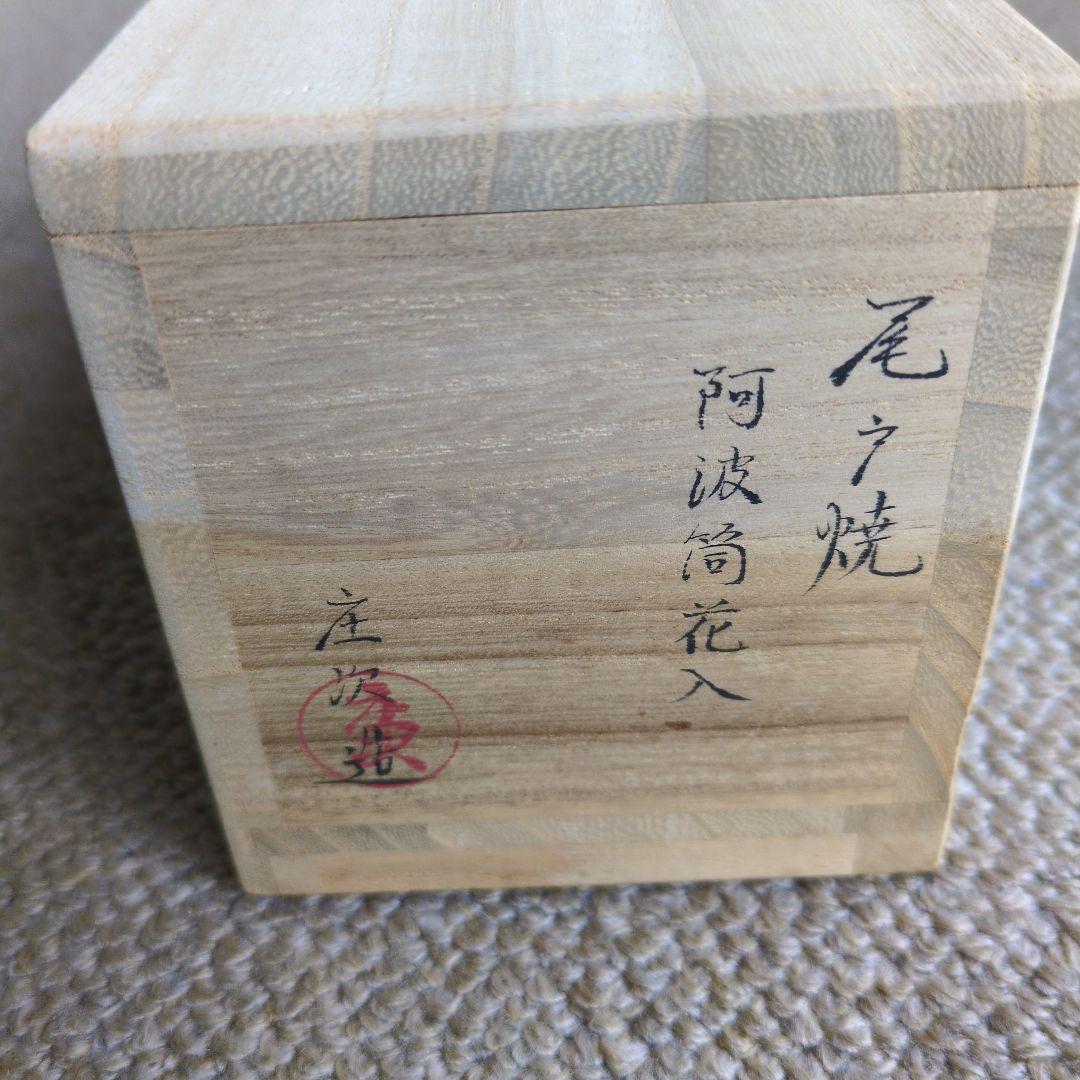 尾戸焼
阿波筒花入
庄次造